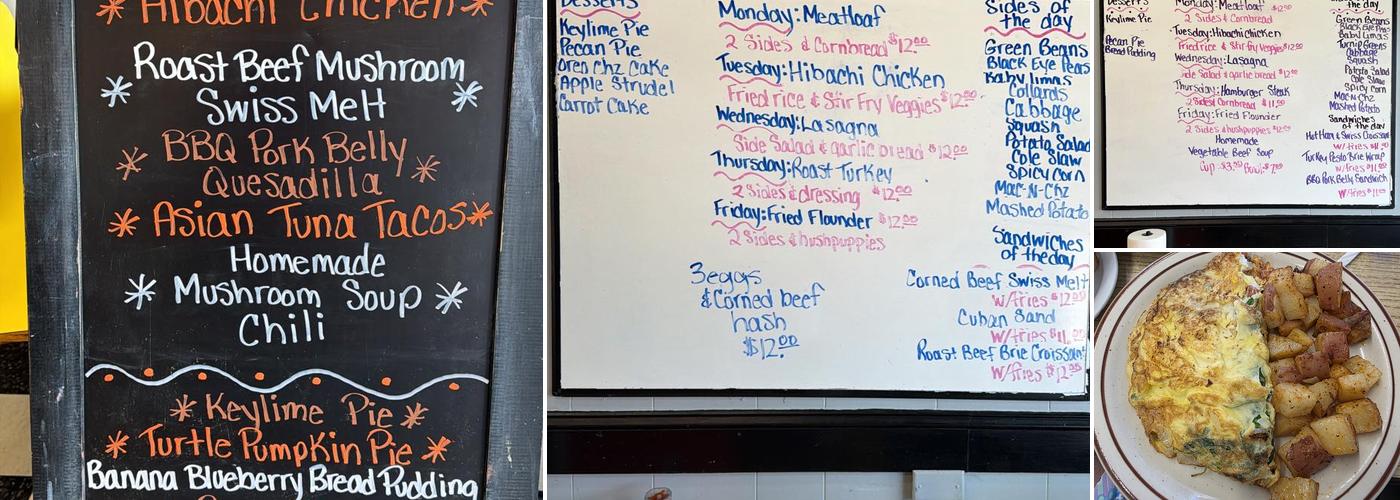 Hibachi Chicken
Roast Beef Mushroom
Swiss Melt
BBQ Pork Belly
Quesadilla
Asian Tuna Tacos
Homemade
Mushroom Soup
Chili
Keylime Pie
Turtle Pumpkin Pie
Banana Blueberry Bread Pudding
Desserts
Keylime Pie
Pecan Pie
Oreo Chz Cake
Apple Strudel
Carrot Cake
Monday: Meatloaf
2 Sides & Cornbread $12.00
Tuesday: Hibachi Chicken
Fried rice & Stir Fry Veggies $12.00
Wednesday: Lasagna
Side Salad & garlic bread $12.00
Thursday: Roast Turkey
2 Sides & dressing $12.00
Friday: Fried Flounder $12.00
2 Sides & hushpuppies
3 eggs
& Corned beef
hash
$12.00
Sides of
the day
Green Beans
Black Eye Peas
Baby limas
Collards
Cabbage
Squash
Potato Salad
Cole Slaw
Spicy Corn
Mac-N-Chz
Mashed Potato
Sandwiches
of the day
Corned Beef Swiss Melt
w/fries $12.00
Cuban Sand
w/fries $11.00
Roast Beef Brie Croissant
w/fries $12.00
Keylime Pie
Pecan Pie
Bread Pudding
Monday: Meatloaf $12.00
2 Sides & Cornbread
Tuesday: Hibachi Chicken
Fried rice & Stir Fry Veggies $12.00
Wednesday: Lasagna
Side Salad & garlic bread $12.00
Thursday: Hamburger Steak
2 Sides & Cornbread $11.00
Friday: Fried Flounder
2 Sides & hushpuppies $12.00
Homemade
Vegetable Beef Soup
Cup $3.50 Bowl
the day
Green Beans
Black Eye Peas
Baby Limas
Turnip Greens
Cabbage
Squash
Potato Salad
Cole Slaw
Spicy Corn
Mac-N-Chz
Mashed Potato
Sandwiches
of the day
Hot Ham & Swiss Croissant
w/fries
Turkey Pesto Brie Wrap
w/fries
BBQ Pork Belly Sandwich
w/fries